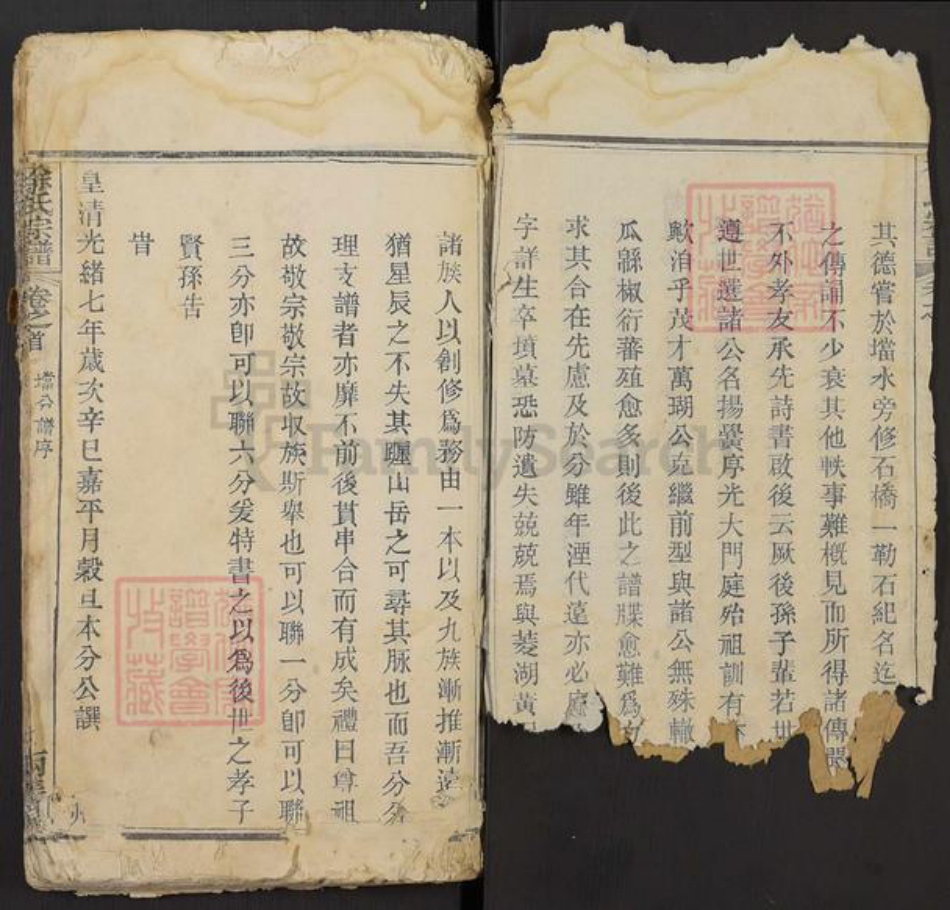 其德嘗於壋水旁修石橋一勒石紀名迄
之傳誦不少衰其他軼事難概見而所得諸傳聞
不外孝友承先詩書啟後云厥後孫子輩若世
遵世選諸公名揚黌序光大門庭殆祖訓有
歟洎乎茂才萬瑚公克繼前型與諸公無殊轍
瓜緜椒衍蕃殖愈多則後此之譜牒愈難爲
求其合在先慮及於分雖年湮代遠亦必
字詳生卒墳墓恐防遺失兢兢焉與菱湖黃
諸族人以創修爲務由一本以及九族漸推漸遠
猶星辰之不失其躔山岳之可尋其脉也而吾分分
理支譜者亦靡不前後貫串合而有成矣禮曰尊祖
故敬宗敬宗故收族斯舉也可以聯一分卽可以聯
三分亦卽可以聯六分爰特書之以爲後世之孝子
賢孫告
旹
皇清光緒七年歲次辛巳嘉平月穀旦本分公譔
徐氏宗譜
卷之首
壋分譜序
FamilySearch